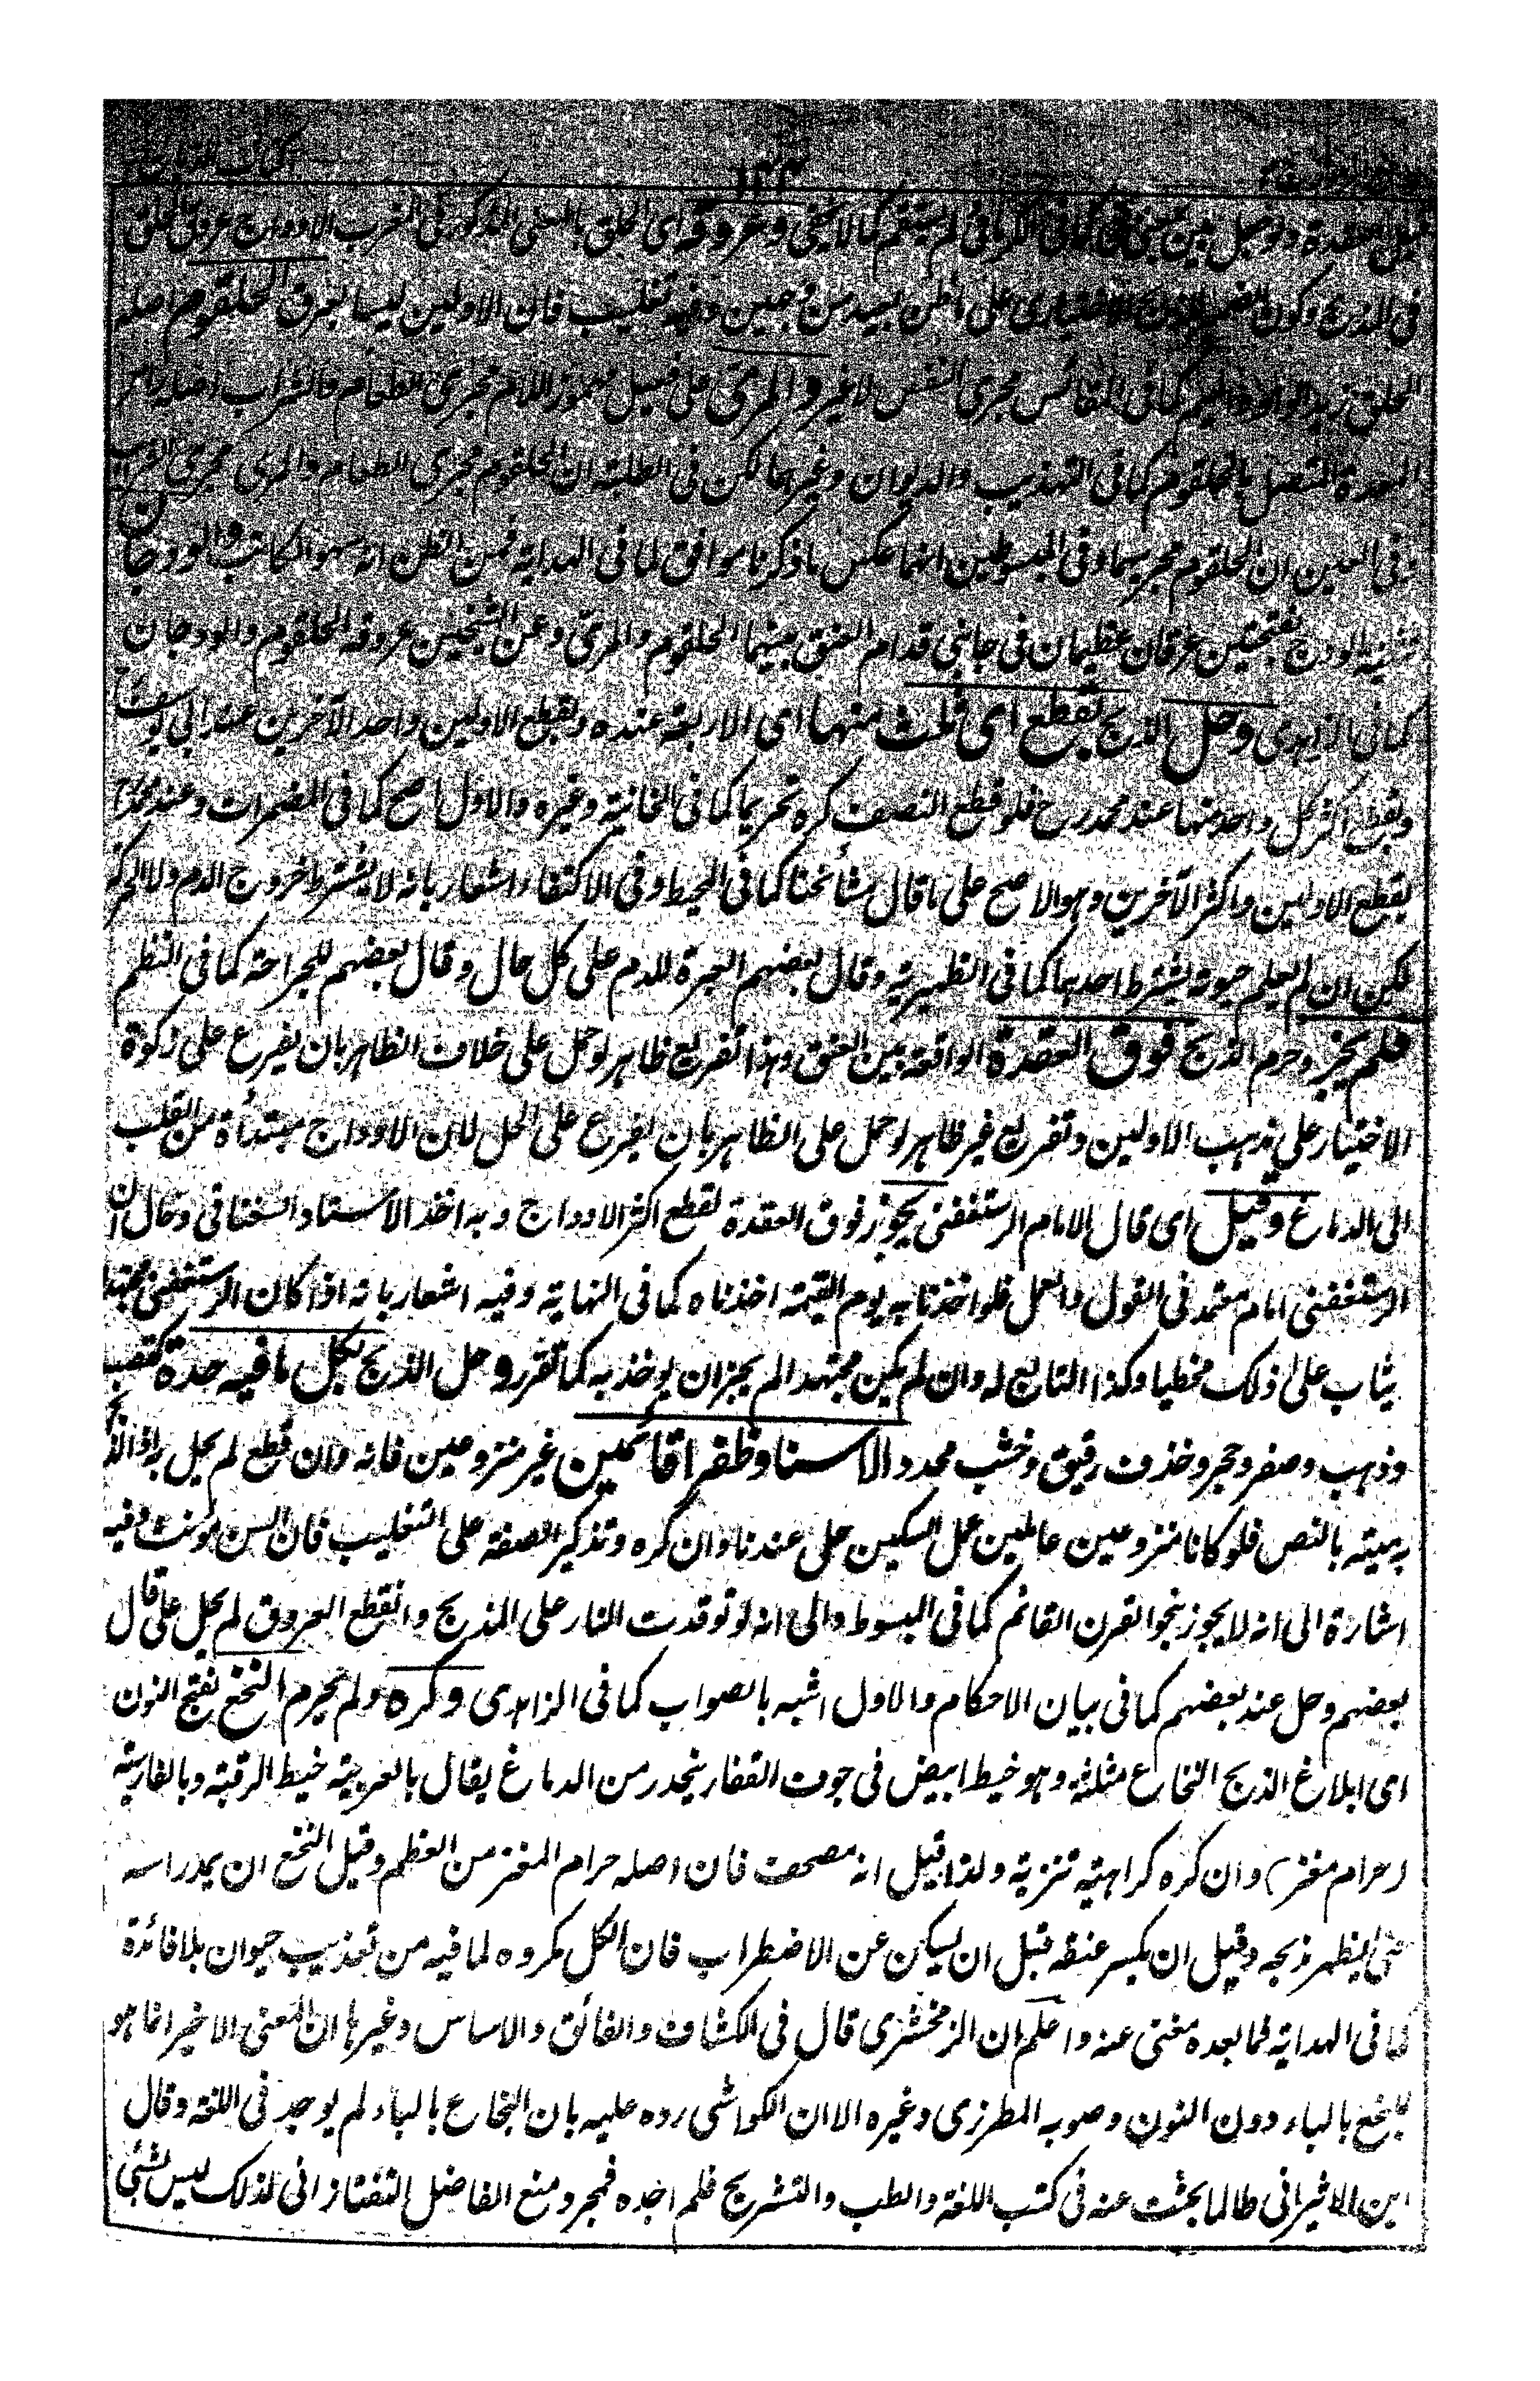 كتاب الذبائح
قبل العقدة ولو جعل بين بمعنى فى كما فى الكرمانى لم يستقم كما لا يخفى وعروقه اى الحلق بالمعنى المذكور فى المغرب الاوداج عروق الحلق
فى المذبح وكون الضمير للذبح الاختيارى على ما ظن بعيد من وجهين وفيه تغليب فان الاولين ليسا بعرق الحلقوم اصله
الحلق زيد الواو والميم كما فى المقائس مجرى النفس لا غير والمرئ على فعيل مهموز اللام مجرى الطعام والشراب اصله رأس
المعدة المتصل بالحلقوم كما فى التهذيب والديوان وغيرهما لكن فى الطلبة ان الحلقوم مجرى الطعام والمرئ مجرى الشراب
وفى العين ان الحلقوم مجريهما وفى المبسوطين انهما عكس ما ذكرنا موافق لما فى الهداية فمن الظن انه سهو الكاتب والودجان
تثنية الودج بفتحتين عرقان عظيمان فى جانبى قدام العنق بينهما الحلقوم والمرئ وعن الشيخين عروقه الحلقوم والودجان
كما فى الزاهدى وحل الذبح بقطع اى ثلث منها اى الاربعة عنده وبقطع الاولين واحد الآخرين عند ابى يوسف رح
وبقطع اكثر كل واحد منها عند محمد رح فلو قطع النصف كره تحريما كما فى الخانية وغيره والاول اصح كما فى المضمرات وعند محمد رح
بقطع الاولين واكثر الآخرين وهو الاصح على ما قال مشائخنا كما فى المحيط وفى الاكتفاء اشعار بانه لا يشترط خروج الدم ولا التحرك
لكن ان لم يعلم حيوته يشترط احدهما كما فى الظهيرية وقال بعضهم العبرة للدم على كل حال وقال بعضهم للجراحة كما فى النظم
فلم يجز وحرم الذبح فوق العقدة الواقعة بين العنق وهذا تفريع ظاهر لو حمل على خلاف الظاهر بان يفرع على ذكوة
الاختيار على مذهب الاولين وتفريع غير ظاهر لو حمل على الظاهر بان يفرع على الحل لان الاوداج مبتدأة من القلب
الى الدماغ وقيل اى قال الامام الرستغفنى يجوز فوق العقدة لقطع اكثر الاوداج وبه اخذ الاستاد السغناقى وقال ان
الرستغفنى امام معتمد فى القول والعمل فلو اخذنا به يوم القيمة اخذناه كما فى النهاية وفيه اشعار بانه اذا كان الرستغفنى مجتهدا
يثاب على ذلك مخطيا وكذا التابع له وان لم يكن مجتهدا لم يجز ان يوخذ به كما تقرر وحل الذبح بكل ما فيه حدة كقصب
وذهب وصفر وحجر وخذف رقيق وخشب محدد الا سنا وظفرا قائمين غير منزوعين فانه وان قطع لم يحل بهذا الذبح
ميتة بالنص فلو كانا منزوعين عاملين عمل السكين حل عندنا وان كره وتذكير الصفة على التغليب فان السن مونث وفيه
اشارة الى انه لا يجوز بنحو القرن القائم كما فى المبسوط والى انه لو توقدت النار على المذبح وانقطع العروق لم يحل على قال
بعضهم وحل عند بعضهم كما فى بيان الاحكام والاول اشبه بالصواب كما فى الزاهدى وكره ولم يحرم النخع بفتح النون
اى ابلاغ الذبح النخاع مثلثة وهو خيط ابيض فى جوف الفقار ينحدر من الدماغ يقال بالعربية خيط الرقبة وبالفارسية
(حرام مغز) وان كره كراهية تنزيه ولذا قيل انه مصحف فان اصله حرام المغز من العظم وقيل النخع ان يمد راسه
حتى يظهر مذبحه وقيل ان يكسر عنقه قبل ان يسكن عن الاضطراب فان الكل مكروه لما فيه من تعذيب حيوان بلا فائدة
كما فى الهداية فما بعده مغنى عنه واعلم ان الزمخشرى قال فى الكشاف والفائق والاساس وغيرها ان المعنى الاخير انما هو
للبخع بالباء دون النون وصوبه المطرزى وغيره الا ان الكواشى رده عليه بان البخاع بالباء لم يوجد فى اللغة وقال
ابن الاثير انى طالما بحثت عنه فى كتب اللغة والطب والتشريح فلم اجده فمجرد منع الفاضل التفتازانى لذلك ليس بشئ